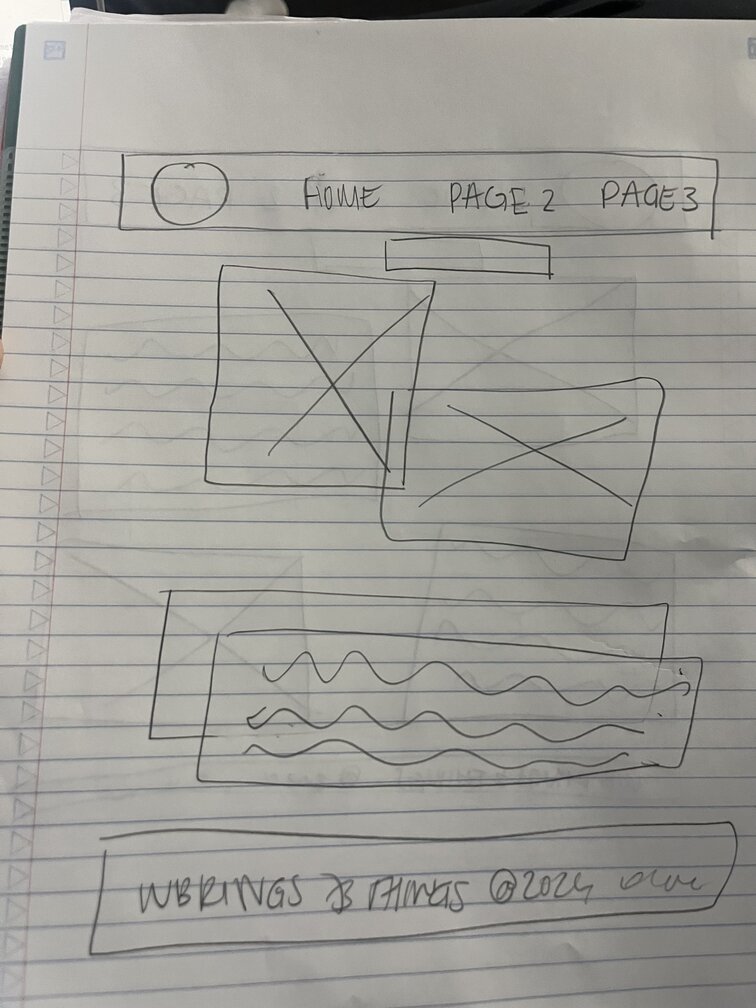 HOME PAGE 2 PAGE 3
WBRINGS & THINGS @2024